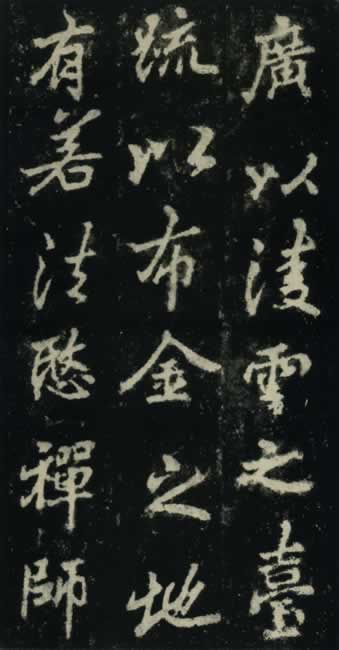 廣以淩雲之臺
疏以布金之地
有若法愍禪師